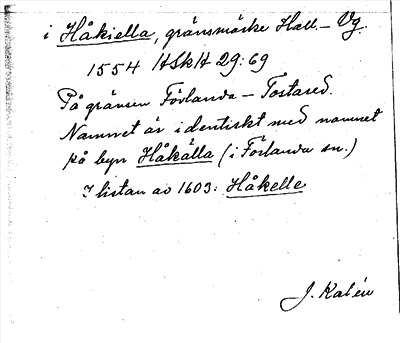 i Håkiella, gränsmärke Hall. – Vg.
1554 HSkH 29:69
På gränsen Förlanda – Tostared.
Namnet är identiskt med namnet
på byn Håkälla (i Förlanda sn.)
I listan av 1603: Håkelle
J. Kalén